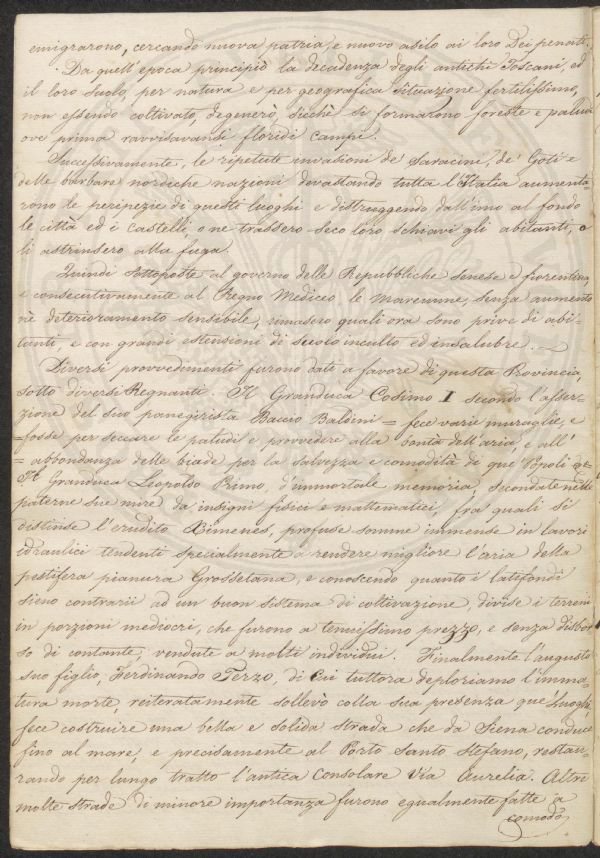 emigrarono, cercando nuova patria, e nuovo asilo ai loro Dei penati.
Da quell'epoca principiò la decadenza degli antichi Toscani, ed
il loro suolo, per natura e per geografica situazione fertilissimo,
non essendo coltivato, degenerò, sicchè si formarono foreste e paludi
ove prima ravvisavansi floridi campi.
Successivamente, le ripetute invasioni de' Saracini, de' Goti e
delle barbare nordiche nazioni devastando tutta l'Italia aumenta
rono le peripezie di questi luoghi e distruggendo dall'imo al fondo
le città ed i castelli, o ne trassero seco loro schiavi gli abitanti, o
li astrinsero alla fuga.
Quindi sottoposte al governo delle Repubbliche senese e fiorentina,
e consecutivamente al Regno Mediceo le maremme, senza aumento
nè deterioramento sensibile, rimasero quali ora sono prive di abi-
tanti, e con grandi estensioni di suolo inculto ed insalubre. —
Diversi provvedimenti furono dati a favore di questa Provincia,
sotto diversi Regnanti. Il Granduca Cosimo I secondo l'asser-
zione del suo panegirista Baccio Baldini = fece varie muraglie, e
= fosse per seccare le paludi e provvedere alla bontà dell'aria, e all'
= abbondanza delle biade per la salvezza e comodità di que' Popoli =
Il Granduca Leopoldo Primo, d'immortale memoria, secondato nelle
paterne sue mire da insigni fisici e mattematici, fra quali si
distinse l'erudito Ximenes, profuse somme immense in lavori
idraulici tendenti specialmente a rendere migliore l'aria della
pestifera pianura Grossetana, e conoscendo quanto i latifondi
sieno contrarii ad un buon sistema di coltivazione, divise i terreni
in porzioni mediocri, che furono a tenuissimo prezzo, e senza disbor
so di contante, vendute a molti individui. Finalmente l'augusto
suo figlio, Ferdinando Terzo, di cui tuttora deploriamo l'imma-
tura morte, reiteratamente sollevò colla sua presenza que' Luoghi,
fece costruire una bella e solida strada che da Siena conduce
fino al mare, e precisamente al Porto Santo Stefano, restau-
rando per lungo tratto l'antica consolare Via Aurelia. Altre
molte strade di minore importanza furono egualmente fatte a
comodo